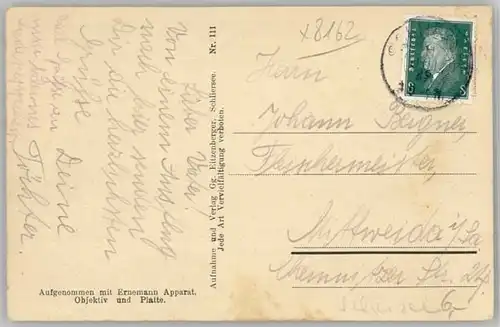 x8162
Lieber Vater!
Von einem Ausflug
nach hier senden
Dir die herzlichsten
Grüße
Deine
Töchter.
Aufgenommen mit Ernemann Apparat,
Objektiv und Platte.
Aufnahme und Verlag Gg. Eitzenberger, Schliersee. Nr. 111
Jede Art Vervielfältigung verboten.
Herrn
Johann
Fleischermeister
Mittweida i/Sa
Chemnitzer Str.